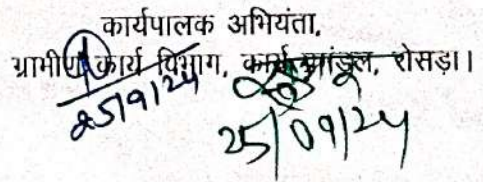 कार्यपालक अभियंता,
ग्रामीण कार्य विभाग, कार्य प्रमंडल, रोसड़ा।
25/9/24
25/09/24